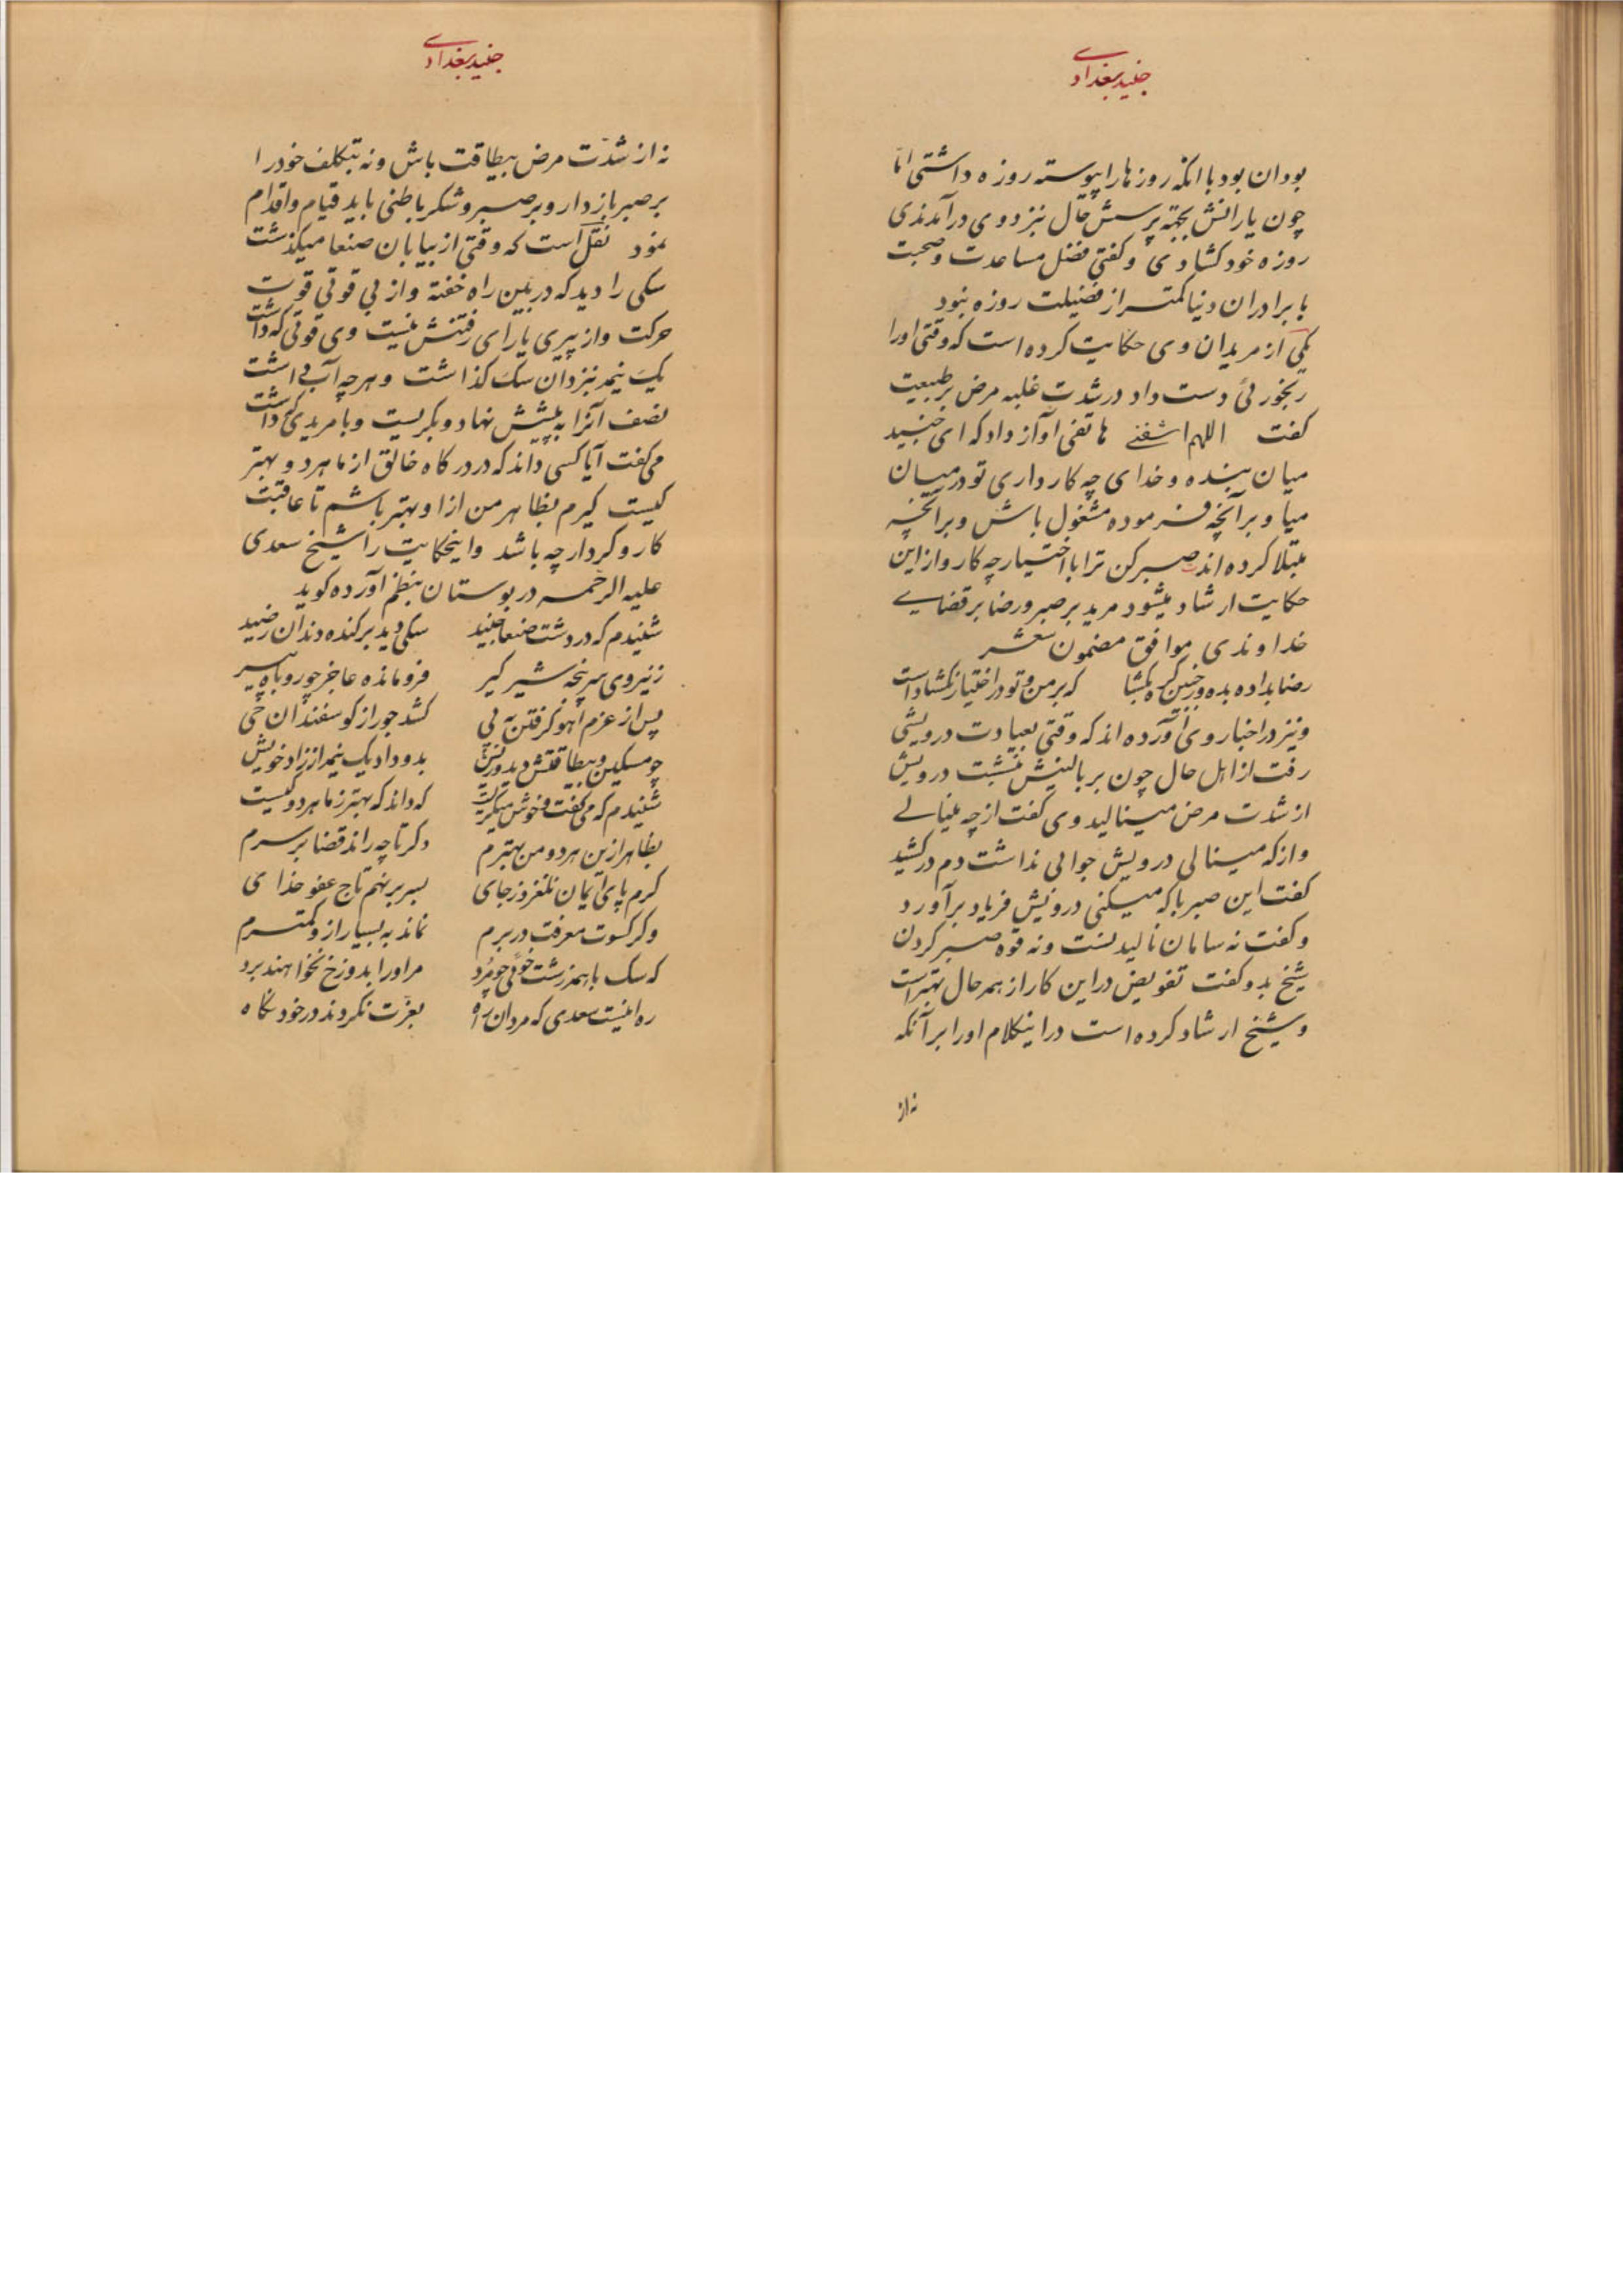 جنید بغدادی
بودان بود باانکه روزها را پیوسته روزه داشتی امّا
چون یارانش بجهته پرسش حال بنزد وی درآمدندی
روزه خود کشادی و کفتی فضل مساعدت و صحبت
با برادران دنیا کمتر از فضیلت روزه نبود
یکی از مریدان وی حکایت کرده است که وقتی اورا
رنجوریٔ دست داد در شدت غلبه مرض بر طبیعت
کفت اللهم اشفنے هاتفی آواز داد که ای جنید
میان بنده و خدای چه کار داری تو در میان
میا و برآنچه فرموده مشغول باش و برآنچه
مبتلا کرده اند صبر کن ترا با اختیار چه کار و از این
حکایت ارشاد میشود مرید بر صبر و رضا بر قضایے
خداوندی موافق مضمون شعر
رضا بداده بده وز جبین کره بکشا که بر من و تو در اختیار نکشاداست
و نیز در اخبار وی آورده اند که وقتی بعیادت درویشی
رفت از اهل حال چون بر بالینش بنشست درویش
از شدت مرض مینالید وی کفت از چه مینالے
و از که مینالی درویش جوابی نداشت دم درکشید
کفت این صبر با که میکنی درویش فریاد برآورد
و کفت نه سامان نالیدنست و نه قوه صبر کردن
شیخ بدو کفت تفویض در این کار از همه حال بهتر است
و شیخ ارشاد کرده است در اینکلام او را بر آنکه
نه از
جنید بغدادی
نه از شدّت مرض بیطاقت باش و نه بتکلف خود را
بر صبر بازدار و بر صبر و شکر باطنی باید قیام و اقدام
نمود نقل است که وقتی از بیابان صنعا میکذشت
سکی را دید که در بین راه خفته و از بی قوتی قوت
حرکت و از پیری یارای رفتنش نیست وی قوتی که داشت
یک نیمه بنزد آن سک کذاشت و هرچه آب داشت
نصف آنرا به پیشش نهاد و بکریست و با مریدی که داشت
می کفت آیا کسی داند که در درکاه خالق از ما هردو بهتر
کیست کیرم بظاهر من از او بهتر باشم تا عاقبت
کار و کردار چه باشد و اینحکایت را شیخ سعدی
علیه الرحمه در بوستان بنظم آورده کوید
شنیدم که در دشت صنعا جنید سکی دید برکنده دندان صید
ز نیروی سرپنجه شیر کیر فرومانده عاجز چو روباه پیر
پس از عزم آهو کرفتن به پی کشد جور از کوسفندان حی
چو مسکین و بیطاقتش دید و ریش بدو داد یک نیمه از زاد خویش
شنیدم که می کفت و خوش میکریست که داند که بهتر ز ما هردو کیست
بظاهر ازین هردو من بهترم دکر تا چه راند قضا بر سرم
کرم پای ایمان نلغزد ز جای بسر برنهم تاج عفو خدای
وکر کسوت معرفت در برم نماند به بسیار ازو کمترم
که سک با همه زشت خوئی چو مرد مر او را بدوزخ نخواهند برد
ره اینست سعدی که مردان راه بعزّت نکردند در خود نکاه